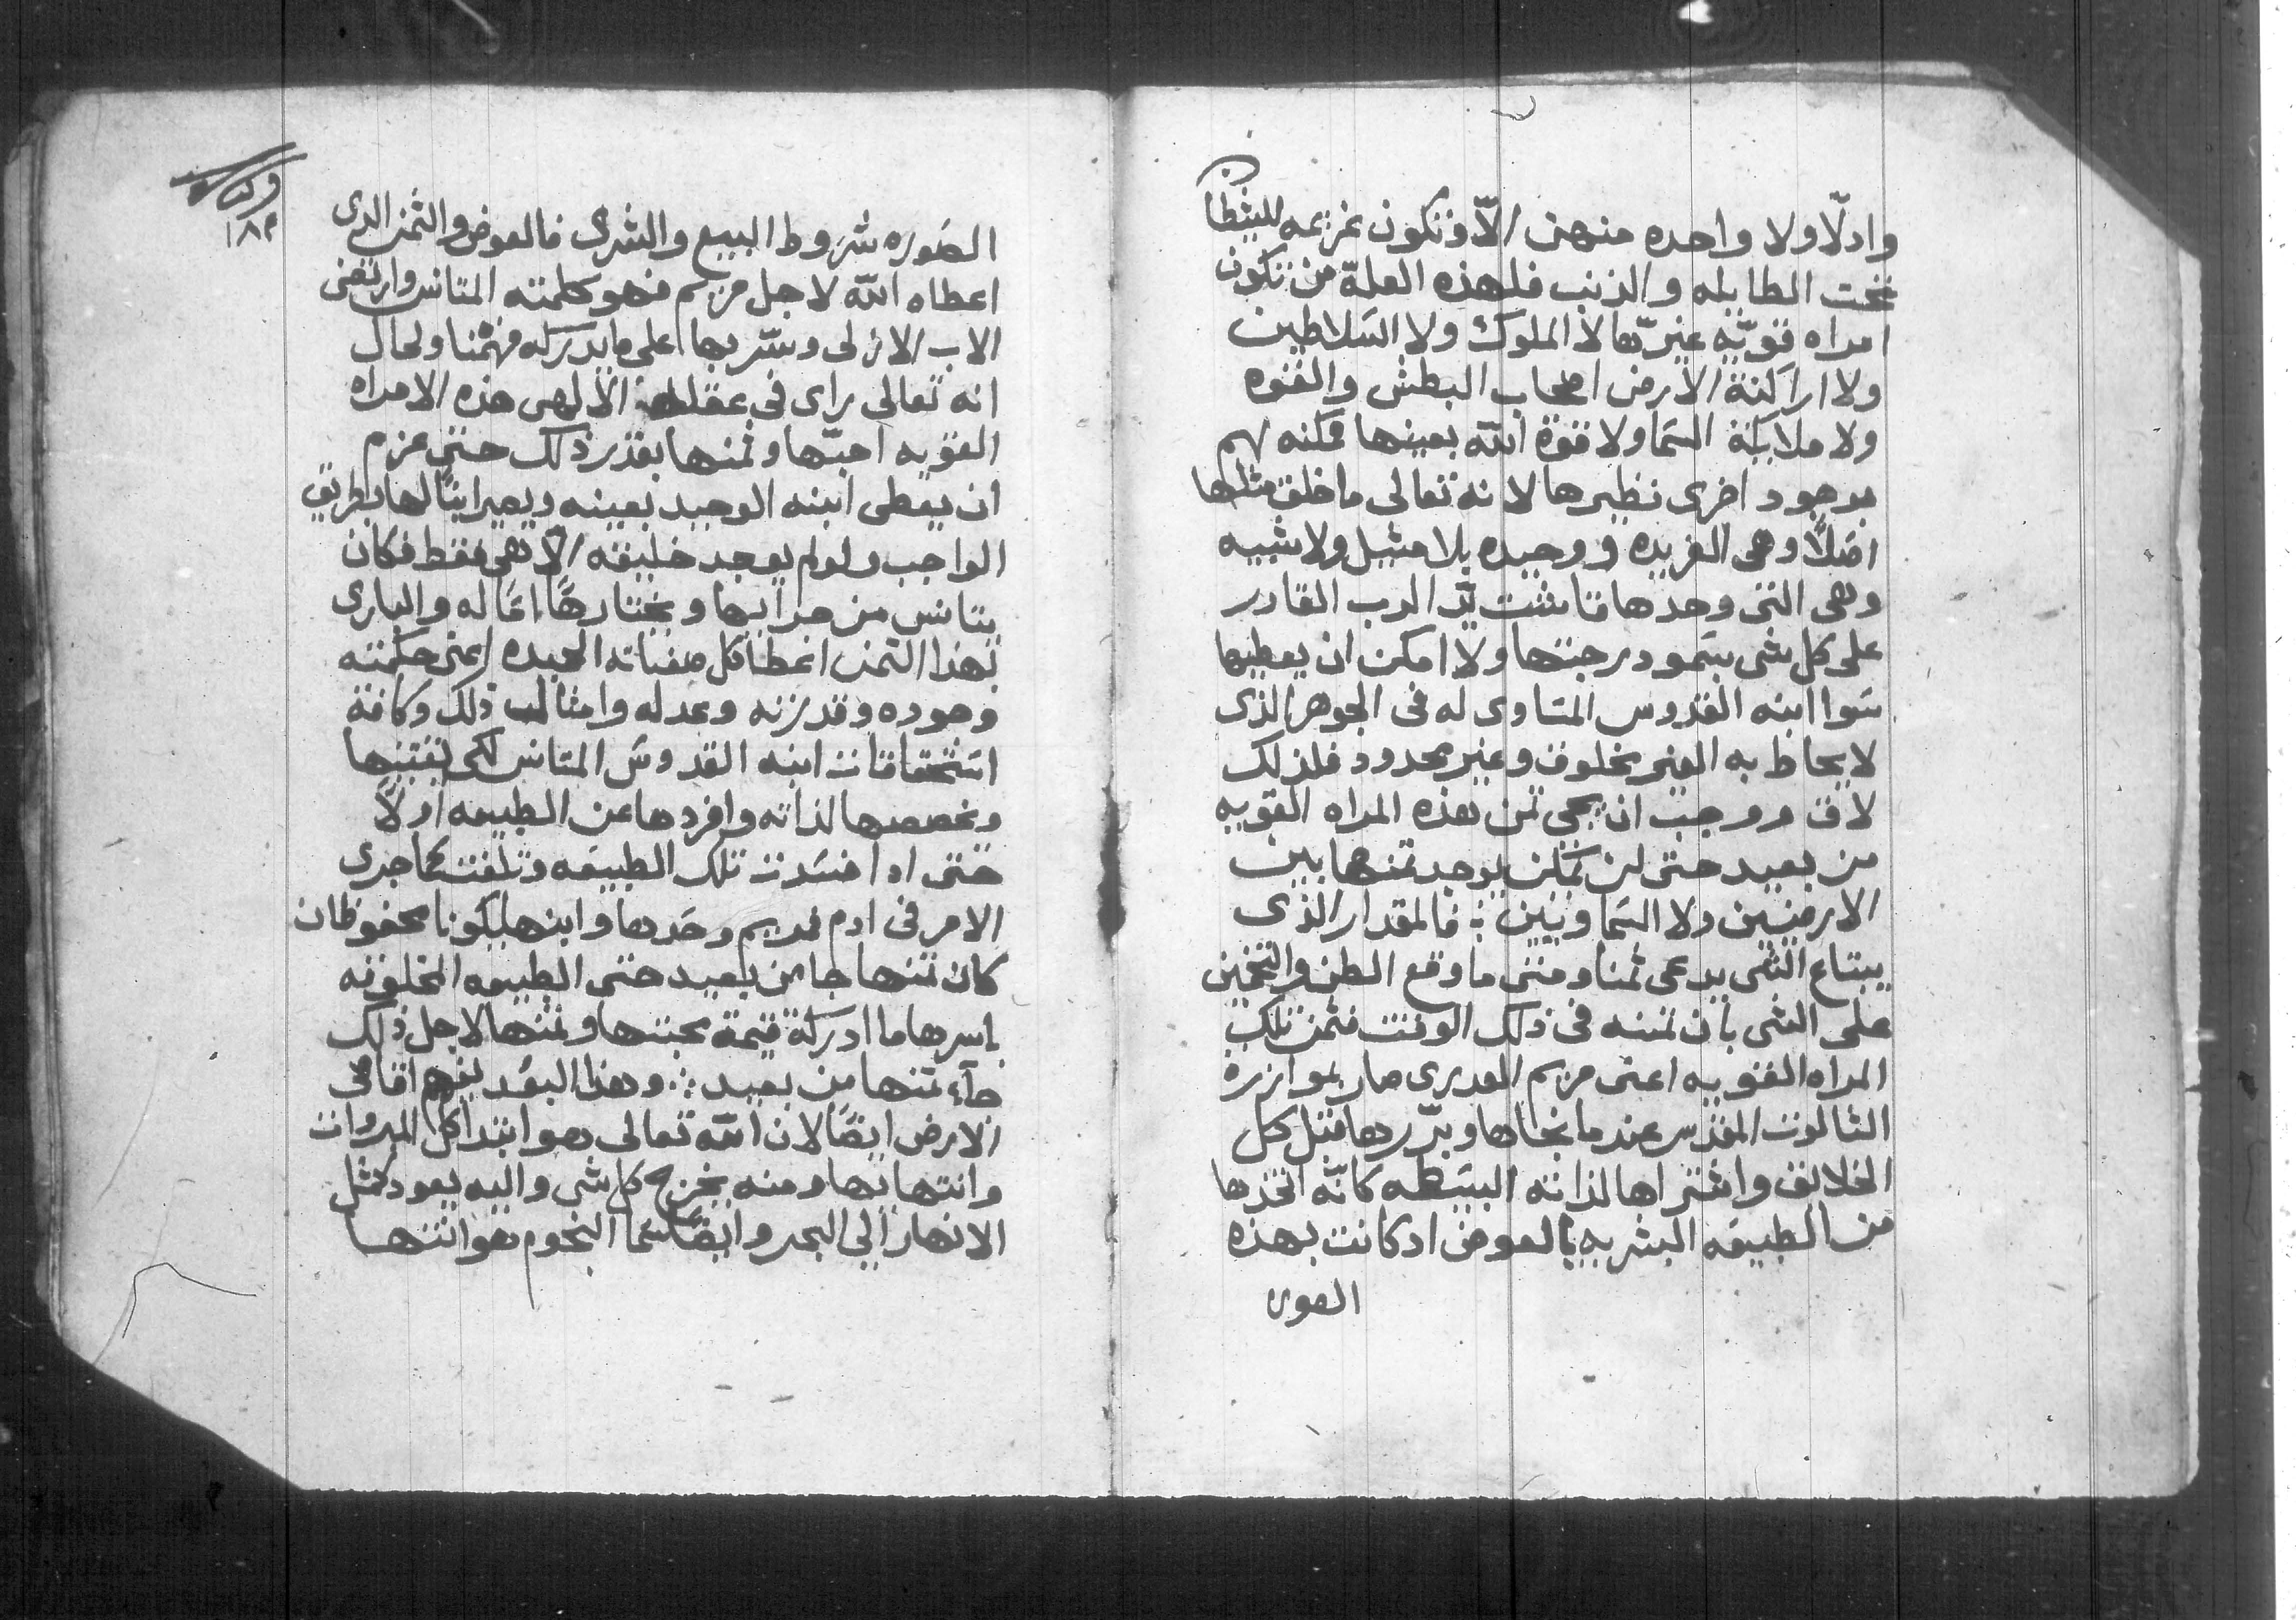 وادلّا ولا واحده منهن الّا وتكون غريمه للشيطان
تحت الطايله والذنب فلهذه العلهّ من تكون
امراه قويّه غيرها لا الملوك ولا السلاطين
ولا اراكنة الارض اصحاب البطش والقوه
ولا ملايكة السما ولا قوة الله بعينها ممكنه لهم
بوجود اخرى نظيرها لانه تعالى ما خلق مثلها
اصلاً وهى الفريده ووحيده بلا مثيل ولا شبيه
وهى التى وحدها يد الرب القادر
على كل شى بسمو درجتها ولا امكن ان يعطيها
سوا ابنه القدوس المساوى له فى الجوهر الذى
لا يحاط به الغير مخلوق وغير محدود فلذلك
لاق ووجب ان يجى ثمن هذه المراه القويه
من بعيد حتى لن يمكن يوجد ثمنها بين
الارضيين ولا السماويين فالمقدار الذى
يبتاع الشى يدعى ثمنا ومتى ما وقع الظن والتخمين
على الشى بان ثمنه فى ذلك الوقت فثمن تلك
المراه القويه اعنى مريم العدرى صار بموازرة
الثالوث المقدس عند ما نجاها وبرّرها قبل كل
الخلائق واشتراها لذاته البسيطه كانّه اتخذها
من الطبيعه البشريه بالعوض اد كانت بهذه
الصوره
وكتاب
١٨٣
الصوره شروط البيع والشرى فالعوض والثمن الدى
اعطاه الله لاجل مريم فهو كلمته المتانس وارتضى
الاب الازلى وسّر بها اعلى ما يدركه فهمنا ولحال
انه تعالى راى فى عقله الالهى هذه الامراه
القويه احبّها وثمنها بقدر ذلك حتى عزم
ان يعطى ابنه الوحيد بعينه ويصير ابنًا لها بطريق
الواجب ولو لم يوجد خليقه الّا هى فقط فكان
يتانس من جرايها ويختارها امّا له والبارى
بهذا الثمن اعطا كل صفاته الحميده اعنى حكمته
وجوده وقدرته وعدله وامثال ذلك وكافة
استحقاقات ابنه القدوس المتانس لكى يقتنيها
ويخصصها لذاته وافردها عن الطبيعه اولاً
حتى ادا فسدت تلك الطبيعه وتلفت كما جرى
الامر فى ادم فمريم وحدها وابنها يكونا محفوظان
كان ثمنها جا من بعيد حتى الطبيعه المخلوقه
باسرها ما ادركة قيمة محبتها وثمنها لاجل ذلك
جآء ثمنها من بعيد وهذا البعد يفهم اقاصى
الارض ايضًا لان الله تعالى هو ابتدا كل المبروات
وانتهايها ومنه يخرج كل شى واليه يعود كمثل
الانهار الى البحر وايضًا سما النجوم هو انتها